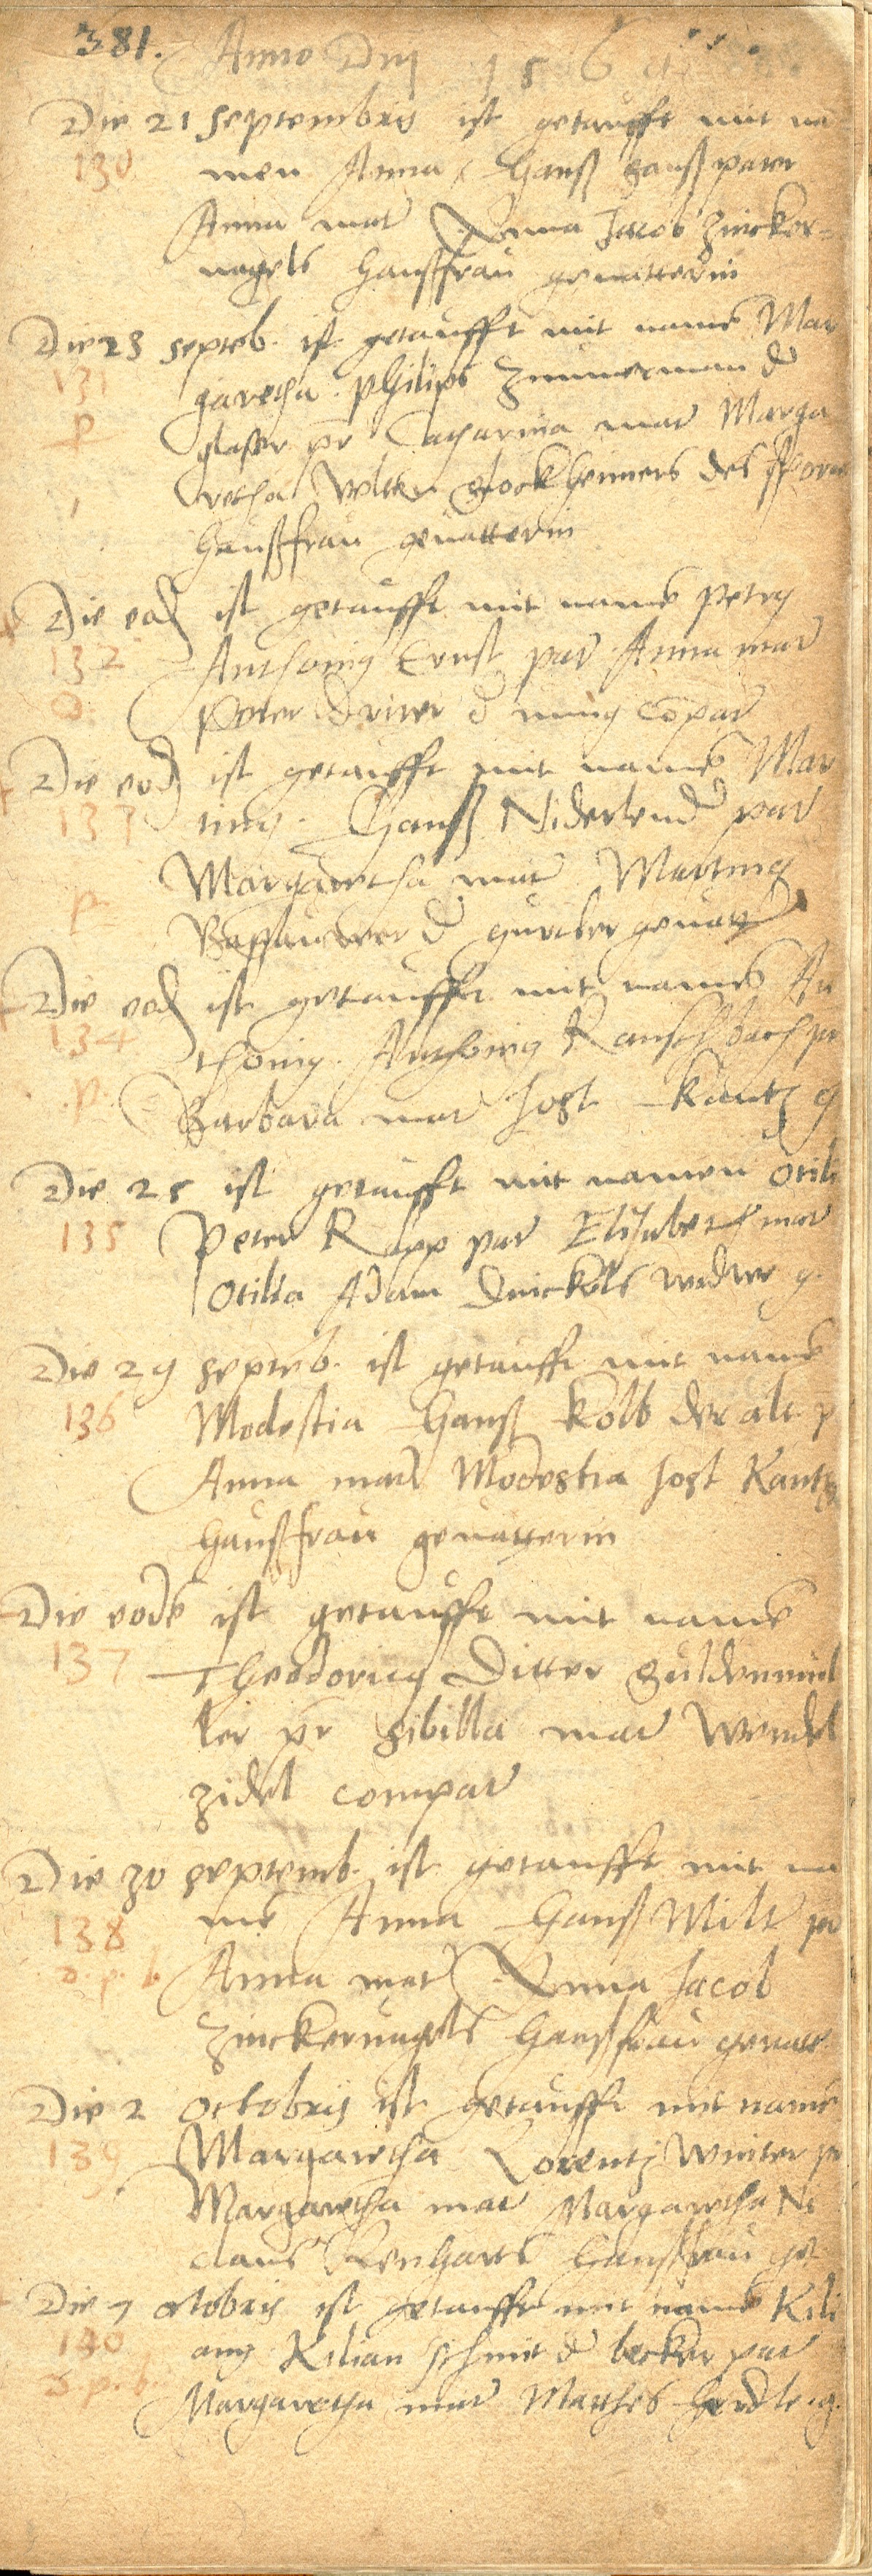 381. Anno Dnj 156
Die 21 Septembris ist getaufft mit na
130 men Anna, Hanß Hanß pater
Anna mat Anna Jacob Zincker=
nagels haußfrau gevatterin
Die 23 septeb. ist getaufft mit name Mar
131 garetha. Philips Zimmerman d
p glaser pr Catharina mat Marga
retha Velten Glockheimers des
haußfrau gevatterin
Die eod ist getaufft mit name Petrg
132 Anthonig Ernst pat Anna mat
o Peter d compat
Die eod ist getaufft mit name Mar
133 ting. Hanß Niderlend pat
Margaretha mat Marting
p d gevatt
Die eod ist getaufft mit name An
134 thonig. Anthonig Ranschbach pa
p. Barbara mat Jost Kantz g
Die 25 ist getaufft mit namen Otili
135 Peter Rapp pat Elisabeth mat
Otilia Adam widwe g.
Die 29 septeb. ist getaufft mit name
136 Modestia Hanß Kolb der alt p
Anna mat Modestia Jost Kantz
haußfrau gevatterin
Die eode ist getaufft mit name
137 Theodoricg Ditter Guldenmul
ler pr Sibilla mat Wendel
Zidel compat
Die 30 septemb. ist getaufft mit na
138 me Anna Hanß Milt pa
o. p. b. Anna mat Anna Jacob
Zinckernagels haußfrau gevatt
Die 2 Octobris ist getaufft mit name
139 Margaretha Lorentz Winter pa
Margaretha mat Margaretha Ni
claus Lenharts haußfrau ge
Die 7 octobris ist getaufft mit name Kili
140 ang Kilian Schmit d becker pat
o. p. b. Margaretha mat Matthes g.